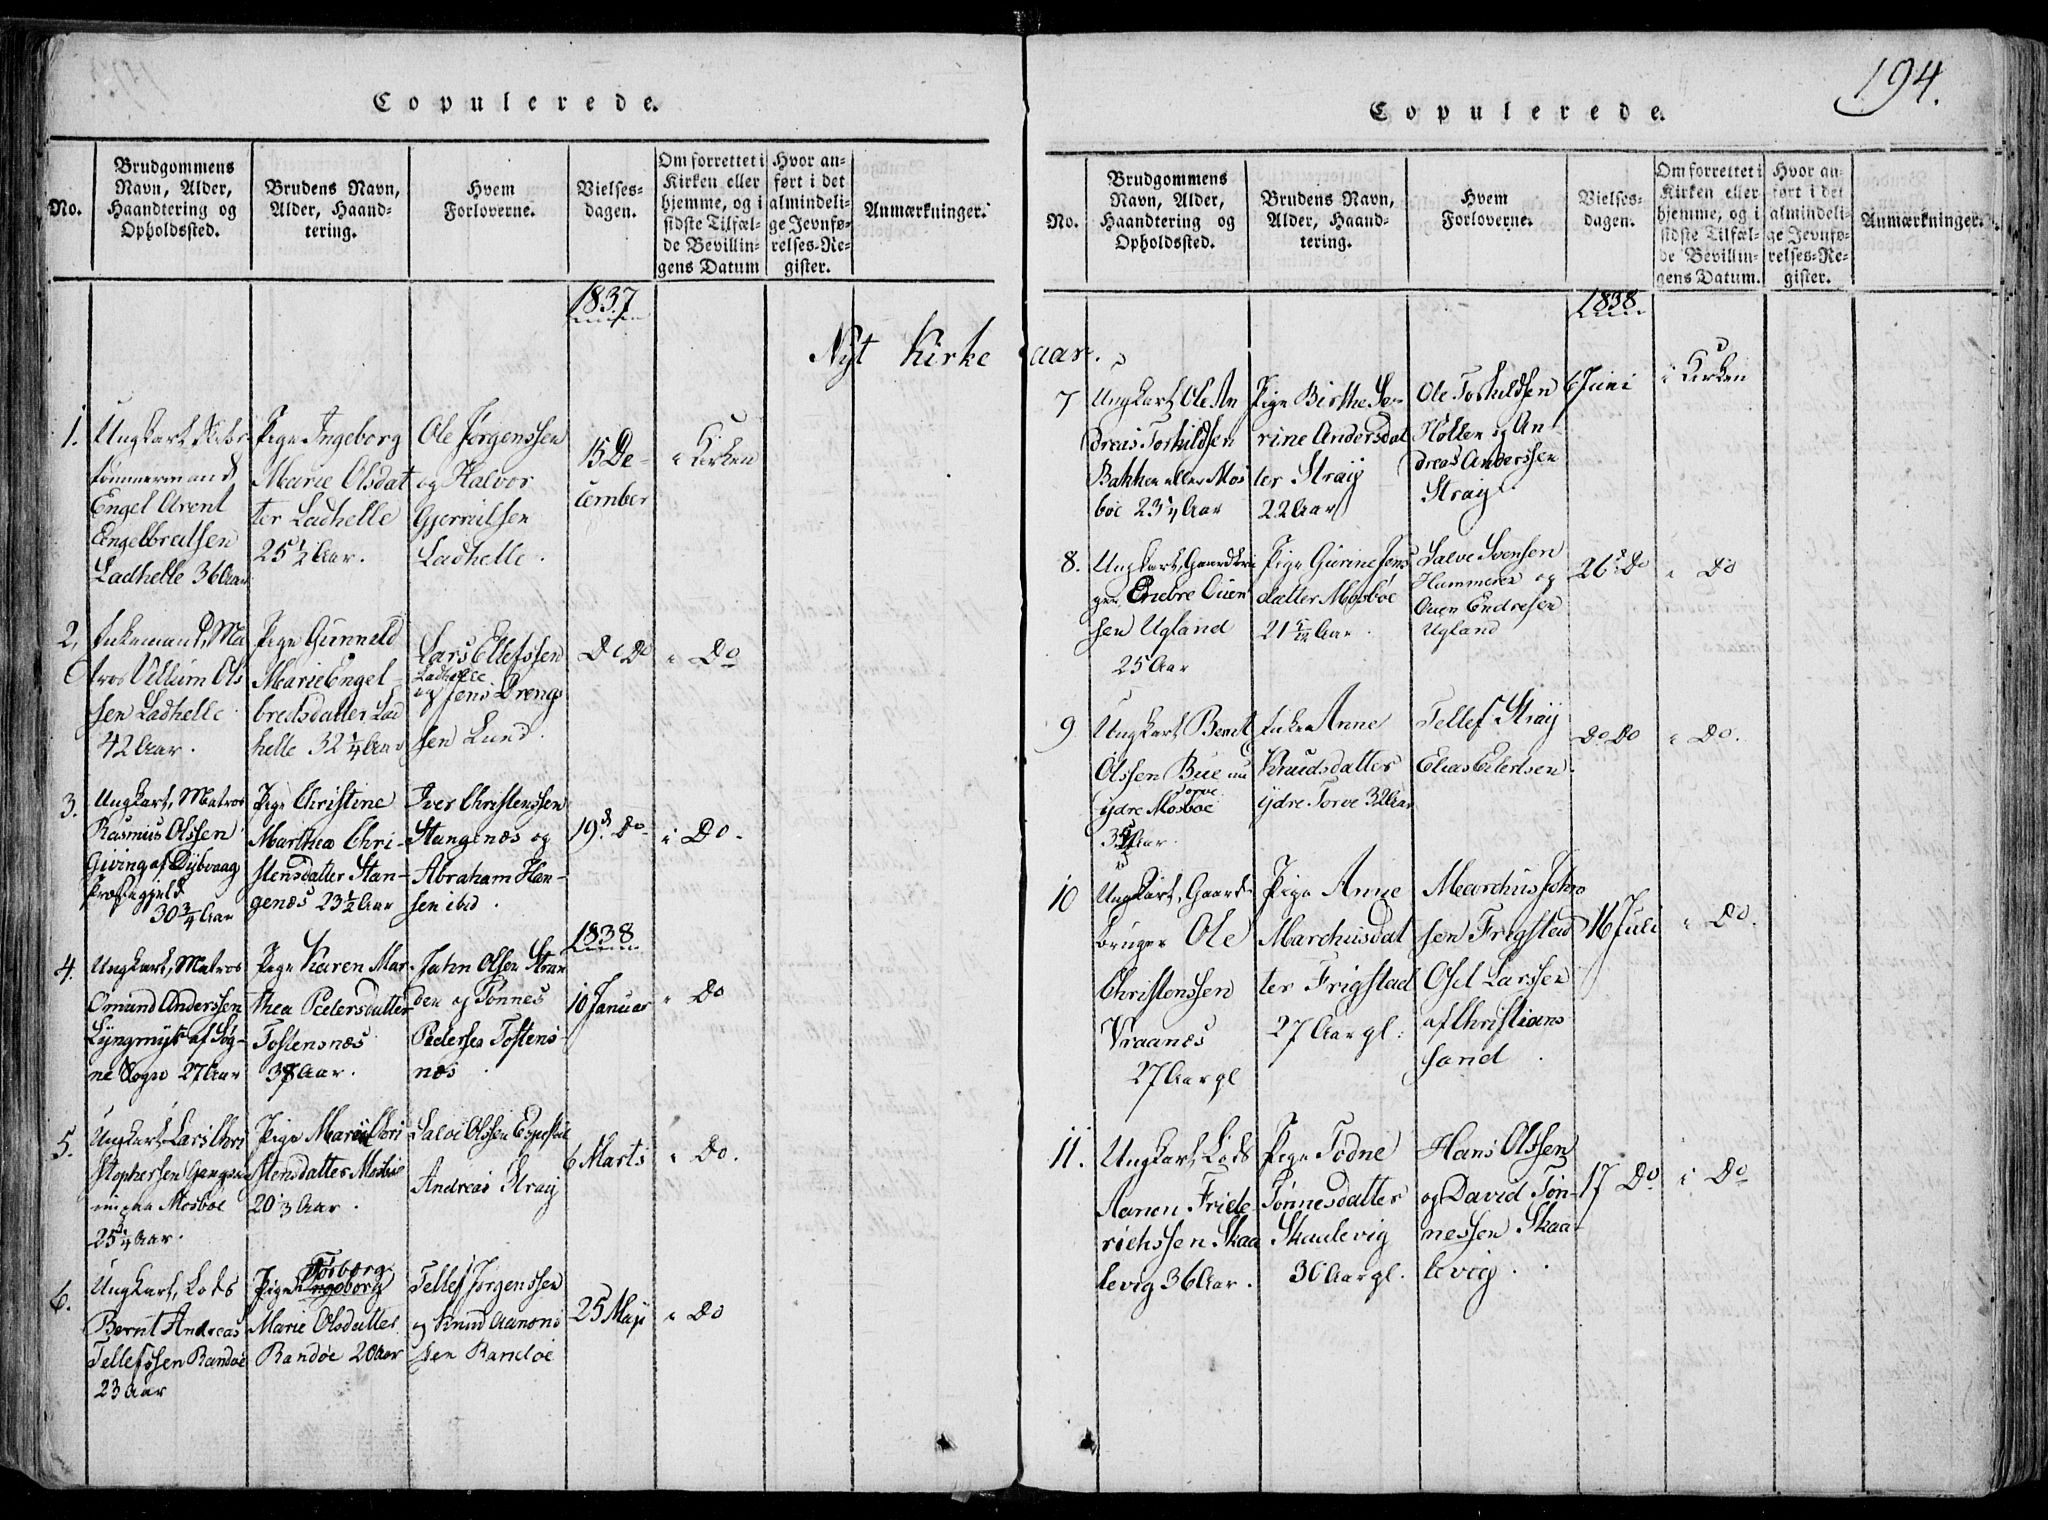 Copulerede.
No.
Brudgommens
Navn, Alder,
Haandtering og
Opholdssted.
Brudens Navn,
Alder, Haand-
tering.
Hvem
Forloverne.
Vielses-
dagen.
Om forrettet i
Kirken eller
hjemme, og i
sidste Tilfæl-
de Bevillin-
gens Datum
Hvor an-
ført i det
almindeli-
ge Jevnfø-
relses-Re-
gister.
Anmærkninger.
1837
Nyt Kirke aar.
1.
Ungkarl
tømmermand
Engel Arent
Engelbretsen
Ladhelle 36 Aar
Pige Ingeborg
Marie Olsdat
ter Ladhelle
25 1/2 Aar.
Ole Jørgenssen
og Halvor
Gjerruldsen
Ladhelle.
15 De-
cember
i Kirken
2,
Enkemand, Ma
tros Villum Ols
sen Ladhelle
42 Aar.
Pige Gunneld
Marie Engel-
bredsdatter Lad
helle 32 1/4 Aar
Lars Ellefssen
Ladhelle
og Jens Drengs
sen Lund.
Do Do
i Do
3.
Ungkarl, Matros
Rasmus Olssen
Giving af Dybvaag
Præstegjeld
30 3/4 Aar
Pige Christine
Marthea Chri-
stensdatter Stan-
genæs 23 1/2 Aar
Iver Christenssen
Stangenæs og
Abraham Han-
sen ibd.
19d. Do
i Do.
1838
4.
Ungkarl, Matros
Omund Anderssen
Lyngmyr af Søg-
ne Sogn 27 Aar
Pige Karen Mar
thea Pedersdatter
Tostensnæs
Aar.
Jahn Olsen Stran
den og Tønnes
Pedersen Tostens-
næs.
10 Januar
i Do
5.
Ungkarl Lars Chri
stophersen
Mosbøe
25 1/4 Aar.
Pige Maren Chri
stensdatter Mosbøe
20 1/3 Aar.
Salve Olssen
Andreas Straÿ
6 Marts
i Do.
6.
Ungkarl, Lods
Bernt Andreas
Tellefssen Randøe
23 Aar
Torborg
Pige Ingeborg
Marie Olsdatter
Randøe 20 Aar
Tellef Jørgenssen
og Knud Aanons
sen Randøe
25 Maji
i Do
194.
Copulerede.
No.
Brudgommens
Navn, Alder,
Haandtering og
Opholdssted.
Brudens Navn,
Alder, Haand-
tering.
Hvem
Forloverne.
Vielses-
dagen.
Om forrettet i
Kirken eller
hjemme, og i
sidste Tilfæl-
de Bevillin-
gens Datum.
Hvor an-
ført i det
almindeli-
ge Jevnfø-
relses-Re-
gister.
Anmærkninger.
1838
7
Ungkarl Ole An
dreas Torkildsen
Bakken eller Mos
bøe 23 1/4 Aar
Pige Birthe Se-
rine Andersdat
ter Straÿ
22 Aar
Ole Torkildsen
Hølten og An-
dreas Anderssen
Straÿ.
6 Juni
i Kirken
8.
Ungkarl, Gaardbru
ger Endre Ouen
sen Ugland
25 Aar
Pige Gurine Jens
datter Mosbøe
21 Aar.
Salve Svensen
Hammeren og
Ouen Endresen
Ugland
26d. Do
i Do
9
Ungkarl Berult
Olssen Bue nu
Torve
ydre Mosbøe
Aar.
Enken Anne
Knudsdatter
ydre Torve 32 Aar
Tellef Straÿ
Elias Eilertsen.
Do Do
i Do.
10
Ungkarl, Gaard-
bruger Ole
Christenssen
Vraanæs
27 Aar gl
Pige Anne
Marchusdat
ter Frigstad
27 Aar gl:
Marchus John
sen Frigstad
Osel Larssen
af Christians
sand.
16 Juli
i Do.
11.
Ungkarl, Lods
Aanon Fride
richssen Skaa
levig 36 Aar.
Pige Todne
Tønnesdatter
Skaalevig
30 Aar gl.
Hans Olssen
og David Tøn-
nessen Skaa-
levig.
17 Do
i Do